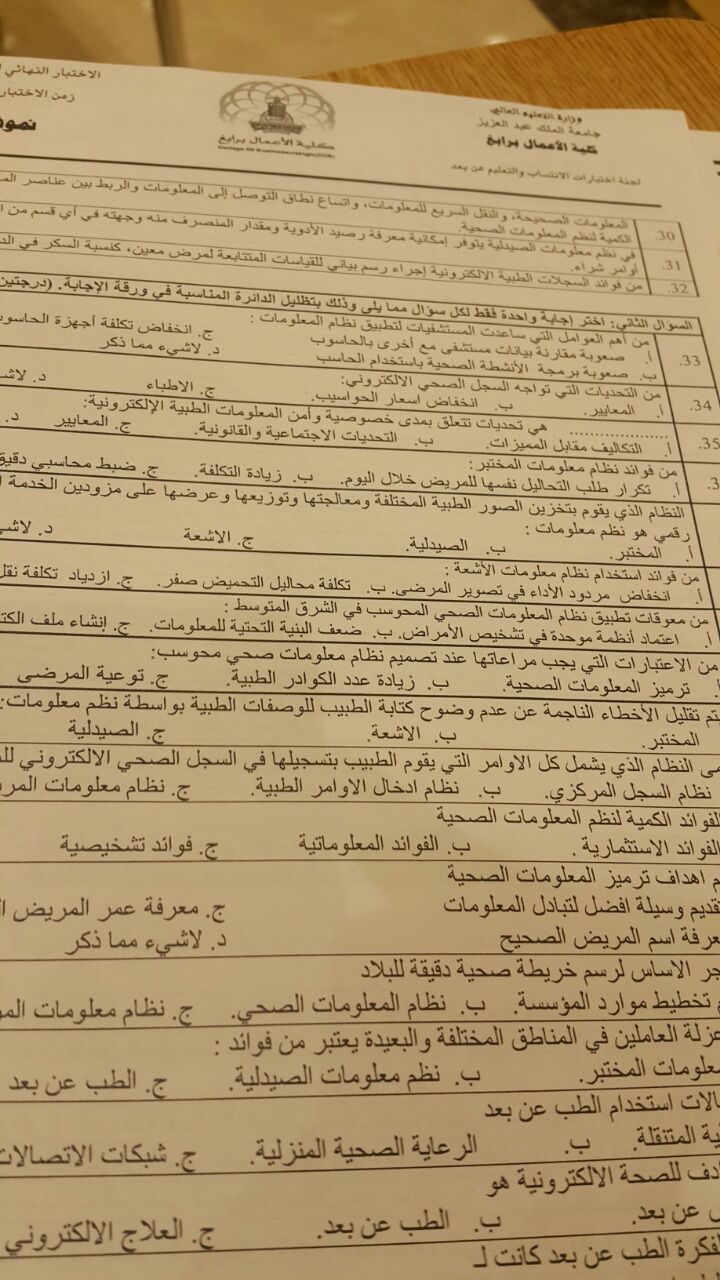 وزارة التعليم العالي
جامعة الملك عبد العزيز
كلية الأعمال برابغ
لجنة اختبارات الانتساب والتعليم عن بعد
كلية الأعمال برابغ
الاختبار النهائي
زمن الاختبار
نموذ
30. المعلومات الصحيحة، والنقل السريع للمعلومات، واتساع نطاق التوصل إلى المعلومات والربط بين عناصر
الكمية لنظم المعلومات الصحية.
31. في نظم معلومات الصيدلية يتوفر إمكانية معرفة رصيد الأدوية ومقدار المنصرف منه وجهته في أي قسم من
أوامر شراء.
32. من فوائد السجلات الطبية الالكترونية إجراء رسم بياني للقياسات المتتابعة لمرض معين، كنسبة السكر في
السؤال الثاني: اختر إجابة واحدة فقط لكل سؤال مما يلي وذلك بتظليل الدائرة المناسبة في ورقة الإجابة. (درجتين
33. من أهم العوامل التي ساعدت المستشفيات لتطبيق نظام المعلومات :
أ. صعوبة مقارنة بيانات مستشفى مع أخرى بالحاسوب ج. انخفاض تكلفة أجهزة الحاسوب
ب. صعوبة برمجة الأنشطة الصحية باستخدام الحاسب د. لاشيء مما ذكر
34. من التحديات التي تواجه السجل الصحي الالكتروني:
أ. المعايير. ب. انخفاض اسعار الحواسيب. ج. الاطباء د. لاش
35. .................. هي تحديات تتعلق بمدى خصوصية وأمن المعلومات الطبية الإلكترونية:
أ. التكاليف مقابل المميزات. ب. التحديات الاجتماعية والقانونية. ج. المعايير د.
3 من فوائد نظام معلومات المختبر:
أ. تكرار طلب التحاليل نفسها للمريض خلال اليوم. ب. زيادة التكلفة. ج. ضبط محاسبي دقيق
النظام الذي يقوم بتخزين الصور الطبية المختلفة ومعالجتها وتوزيعها وعرضها على مزودين الخدمة
رقمي هو نظم معلومات :
أ. المختبر. ب. الصيدلية. ج. الاشعة د. لاشي
من فوائد استخدام نظام معلومات الأشعة :
أ. انخفاض مردود الأداء في تصوير المرضى. ب. تكلفة محاليل التحميض صفر. ج. ازدياد تكلفة نقل
من معوقات تطبيق نظام المعلومات الصحي المحوسب في الشرق المتوسط :
أ. اعتماد أنظمة موحدة في تشخيص الأمراض. ب. ضعف البنية التحتية للمعلومات. ج. إنشاء ملف
من الاعتبارات التي يجب مراعاتها عند تصميم نظام معلومات صحي محوسب:
ترميز المعلومات الصحية. ب. زيادة عدد الكوادر الطبية. ج. توعية المرضى
تم تقليل الأخطاء الناجمة عن عدم وضوح كتابة الطبيب للوصفات الطبية بواسطة نظم معلومات:
المختبر. ب. الاشعة. ج. الصيدلية
مى النظام الذي يشمل كل الاوامر التي يقوم الطبيب بتسجيلها في السجل الصحي الالكتروني
نظام السجل المركزي. ب. نظام ادخال الاوامر الطبية. ج. نظام معلومات
الفوائد الكمية لنظم المعلومات الصحية
الفوائد الاستثمارية . ب. الفوائد المعلوماتية ج. فوائد تشخيصية
م اهداف ترميز المعلومات الصحية
قديم وسيلة افضل لتبادل المعلومات ج. معرفة عمر المريض
عرفة اسم المريض الصحيح د. لاشيء مما ذكر
جر الاساس لرسم خريطة صحية دقيقة للبلاد
م تخطيط موارد المؤسسة. ب. نظام المعلومات الصحي. ج. نظام معلومات
عزلة العاملين في المناطق المختلفة والبعيدة يعتبر من فوائد :
معلومات المختبر. ب. نظم معلومات الصيدلية. ج. الطب عن بعد
الات استخدام الطب عن بعد
ية المتنقلة. ب. الرعاية الصحية المنزلية. ج. شبكات الاتصالات
ادف للصحة الالكترونية هو
عن بعد. ب. الطب عن بعد. ج. العلاج الالكتروني
فكرة الطب عن بعد كانت لـ